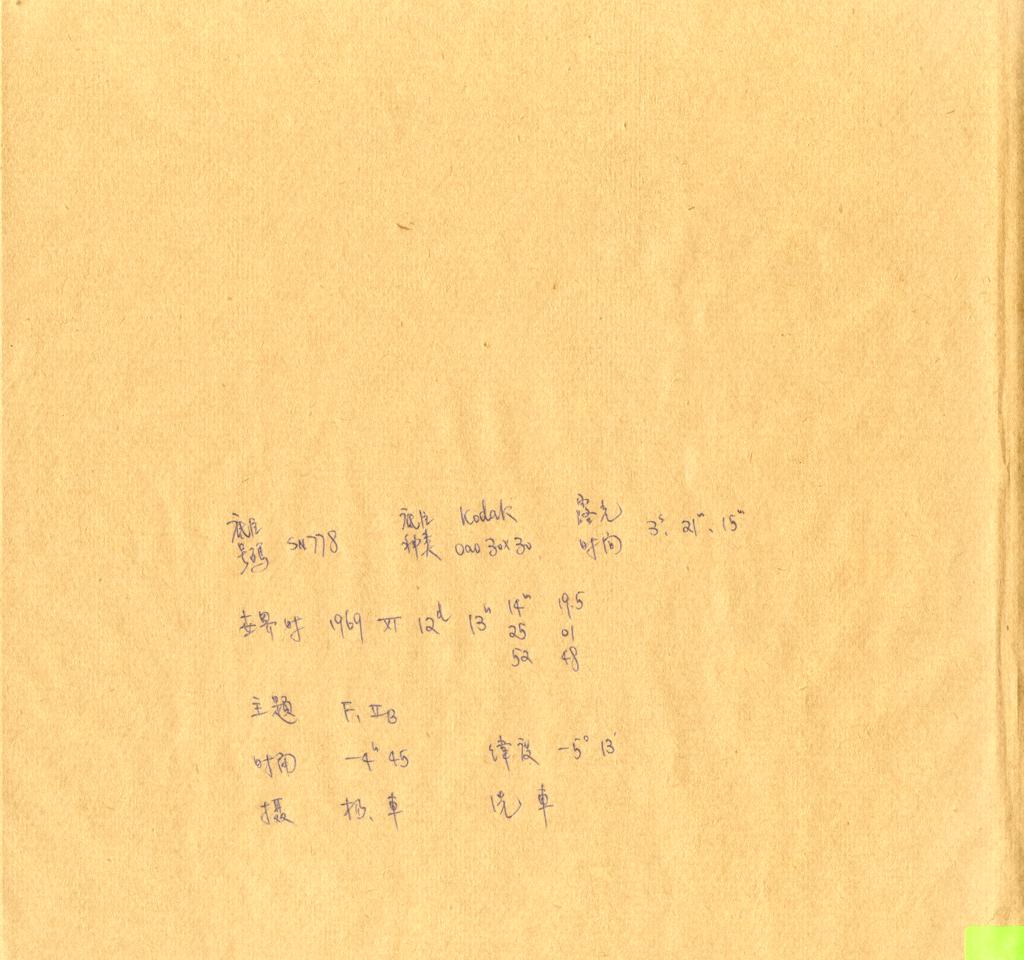 底片号码 SN778 底片种类 Kodak 0a0 30×30 露光时间 3ˢ, 21ᵐ, 15ᵐ
世界时 1969 XI 12ᵈ 13ʰ 14ᵐ 19.5
25 01
52 48
主题 F, IIB
时间 -4ʰ 45 纬度 -5° 13'
摄 杨、車 洗 車